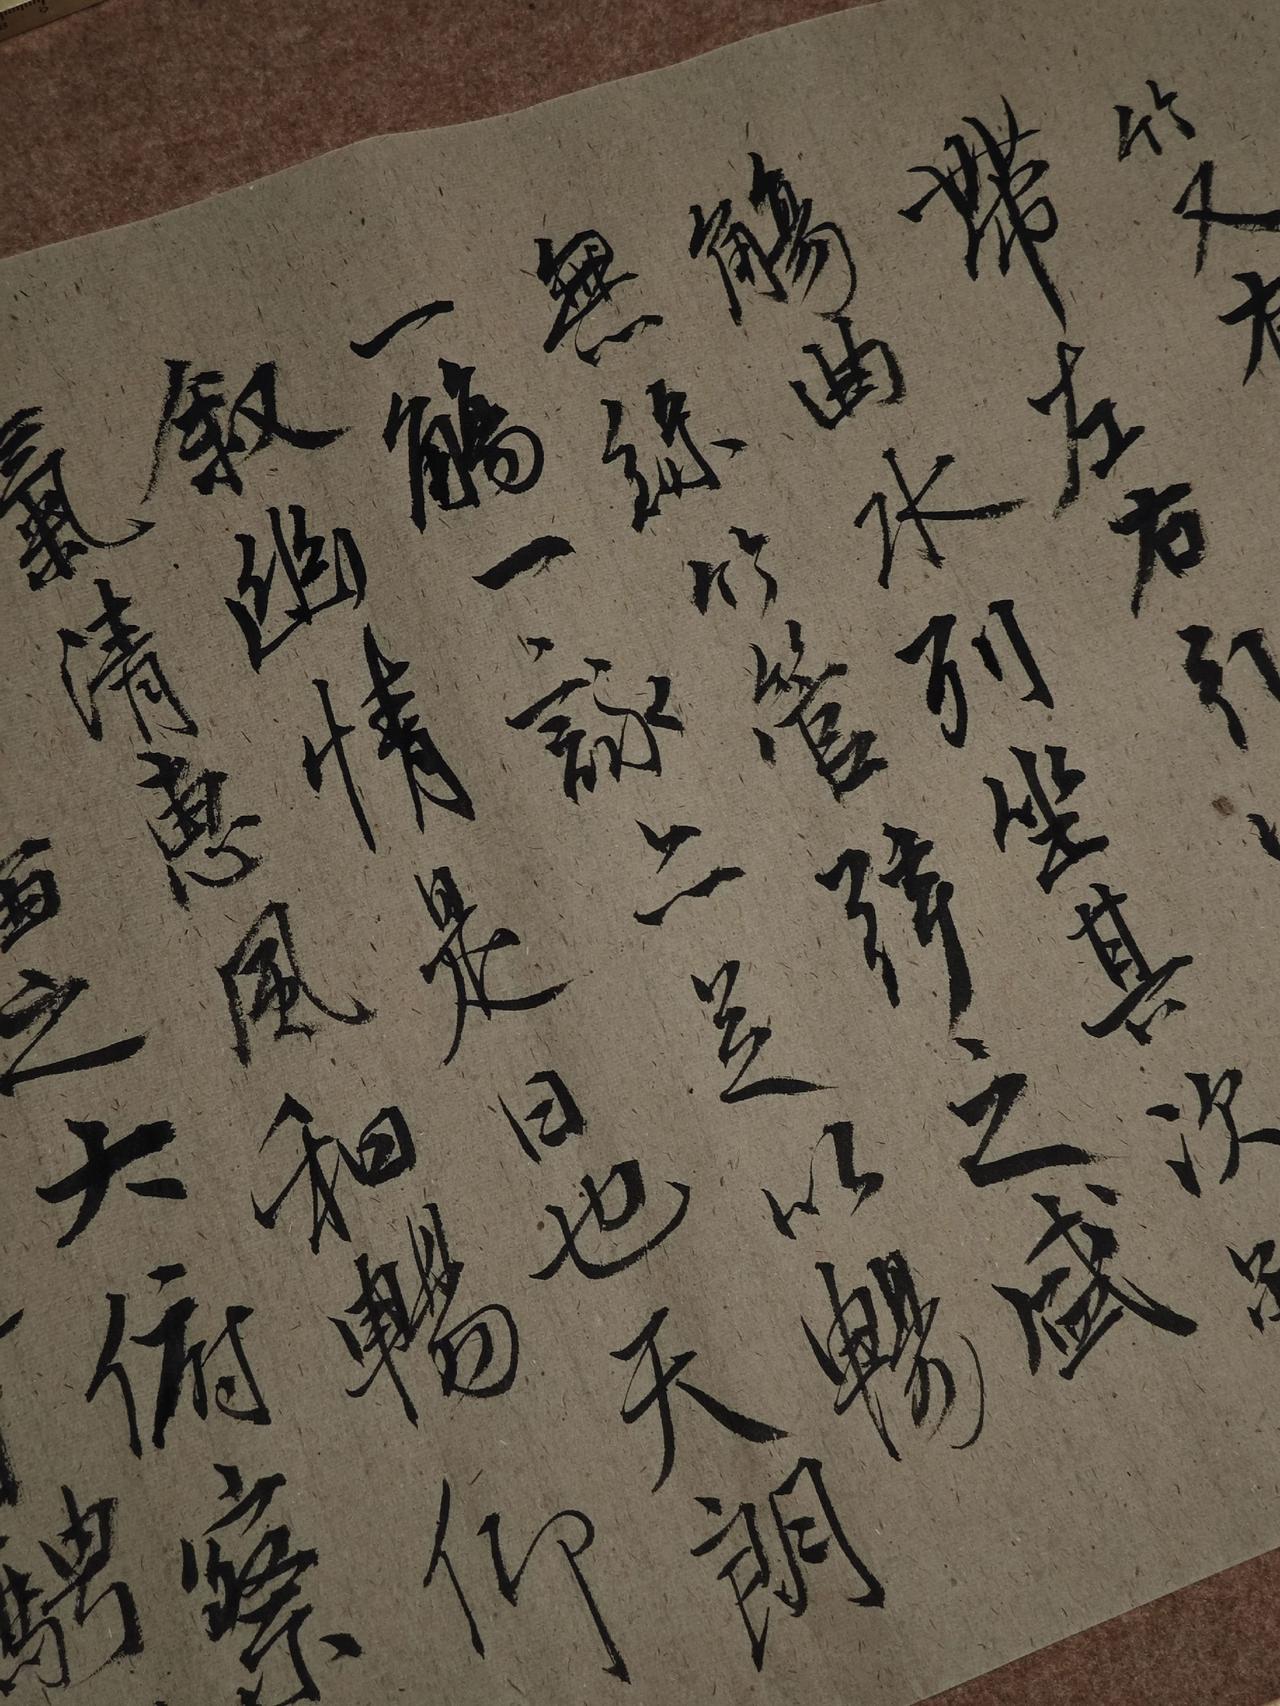 竹又有
帶左右引
觴曲水列坐其次雖
無絲竹管弦之盛
一觴一詠亦足以暢
叙幽情是日也天朗
氣清惠風和暢仰
宙之大俯察
騁